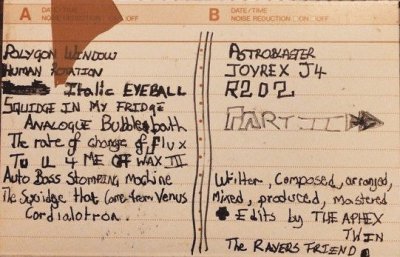 A DATE/TIME
NOISE REDUCTION ON OFF
POLYGON WINDOW
HUMAN ROTATION
Italic EYEBALL
SQUIDGE IN MY FRIDGE
ANALOGUE Bubblebath
The rate of change of Flux
To U 4 ME OFF WAX III
Auto Bass Stomping Machine
The Squidge that Came from Venus
Cordialotron.
B DATE/TIME
NOISE REDUCTION ON OFF
ASTROBLASTER
JOYREX J4
R2D2
PART II
Written, Composed, arranged,
Mixed, produced, mastered
Edits by THE APHEX
TWIN
The RAVERS FRIEND.